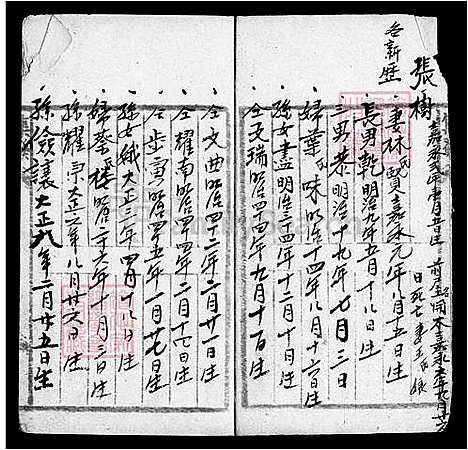 各新歴
張樹
妻林氏賢嘉永元年八月十五日生
長男乾明治九年五月十八日生
三男泰明治十九年七月三日
婦葉氏味明治十四年八月十六日生
孫女盡明治三十四年十月廿日生
仝文瑞明治四十四年九月十一日生
仝文典明治四十二年二月廿一日生
仝耀南明治四十四年二月十七日生
仝步雲明治四十五年一月廿七日生
孫女娥大正三年四月十八日生
婦蔡樓明治二十六年十月三日生
孫耀亭大正六年八月廿六日生
孫儉讓大正八年二月廿五日生